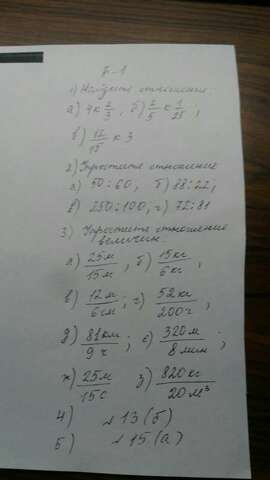 К-1
1) Найдите отношение:
а) 4 к 2/3, б) 2/5 к 1/25,
в) 12/15 к 3
2) Упростите отношение
а) 50:60, б) 88:22,
в) 250:100, г) 72:81
3) Упростите отношение
величин.
а) 25м/15м, б) 15кг/6кг,
в) 12м/6см; г) 52кг/200г
д) 81км/9ч; е) 320м/8мин;
ж) 25м/15с з) 820кг/20м³
4) 13(б)
5) 15(а)